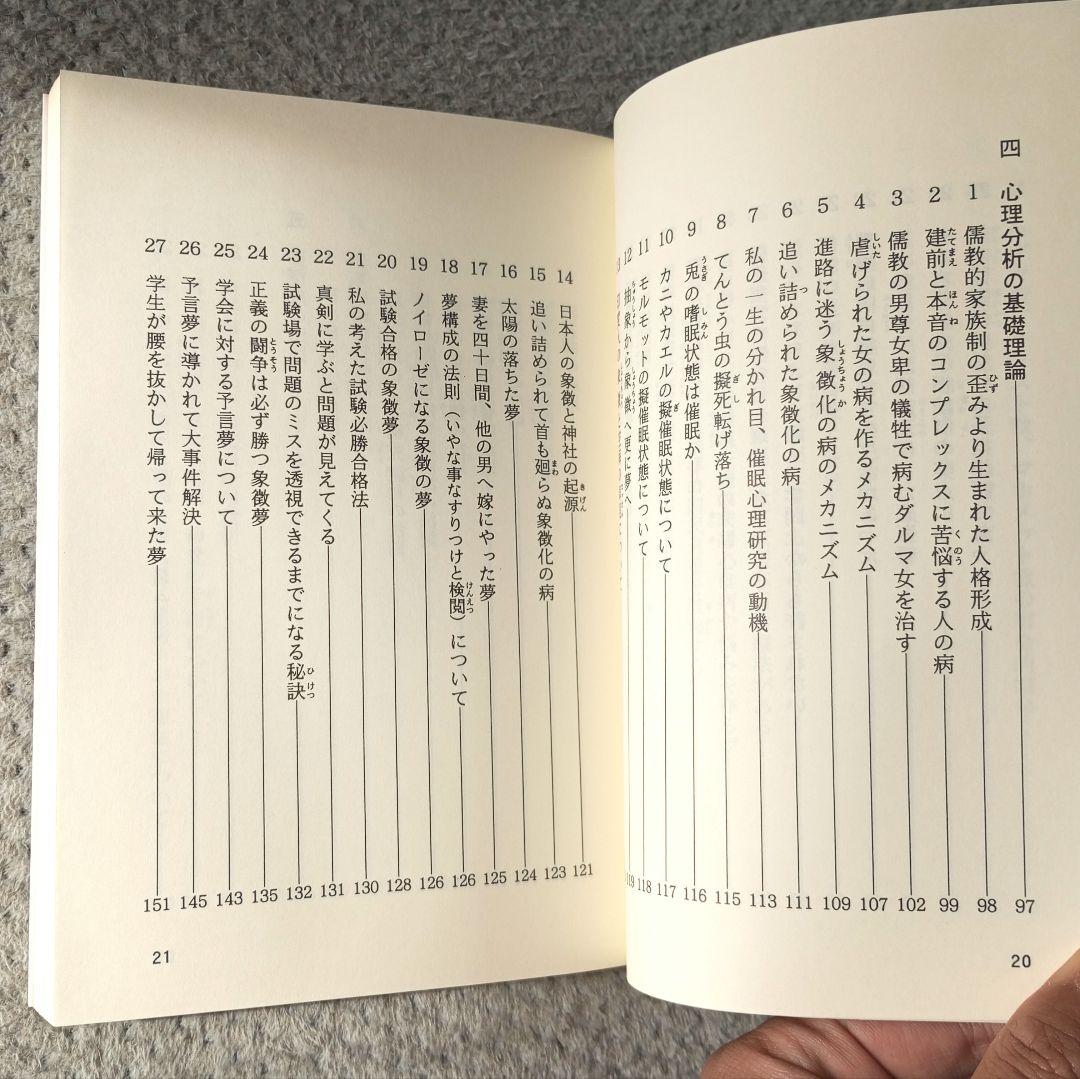 四 心理分析の基礎理論 97
1 儒教的家族制の歪(ひず)みより生まれた人格形成 98
2 建前(たてまえ)と本音(ほんね)のコンプレックスに苦悩(くのう)する人の病 99
3 儒教の男尊女卑の犠牲で病むダルマ女を治す 102
4 虐(しいた)げられた女の病を作るメカニズム 107
5 進路に迷う象徴化(しょうちょうか)の病のメカニズム 109
6 追い詰(つ)められた象徴化の病 111
7 私の一生の分かれ目、催眠心理研究の動機 113
8 てんとう虫の擬死(ぎし)転げ落ち 115
9 兎(うさぎ)の嗜眠(しみん)状態は催眠か 116
10 カニやカエルの擬(ぎ)催眠状態について 117
11 モルモットの擬催眠状態について 118
12 抽象(ちゅうしょう)から象徴(しょうちょう)へ更に夢へ 119
20
14 日本人の象徴と神社の起源(きげん) 121
15 追い詰められて首も廻(まわ)らぬ象徴化の病 123
16 太陽の落ちた夢 124
17 妻を四十日間、他の男へ嫁にやった夢 125
18 夢構成の法則(いやな事なすりつけと検閲(けんえつ))について 126
19 ノイローゼになる象徴の夢 126
20 試験合格の象徴夢 128
21 私の考えた試験必勝合格法 130
22 真剣に学ぶと問題が見えてくる 131
23 試験場で問題のミスを透視できるまでになる秘訣(ひけつ) 132
24 正義の闘争(とうそう)は必ず勝つ象徴夢 135
25 学会に対する予言夢について 143
26 予言夢に導かれて大事件解決 145
27 学生が腰を抜かして帰って来た夢 151
21